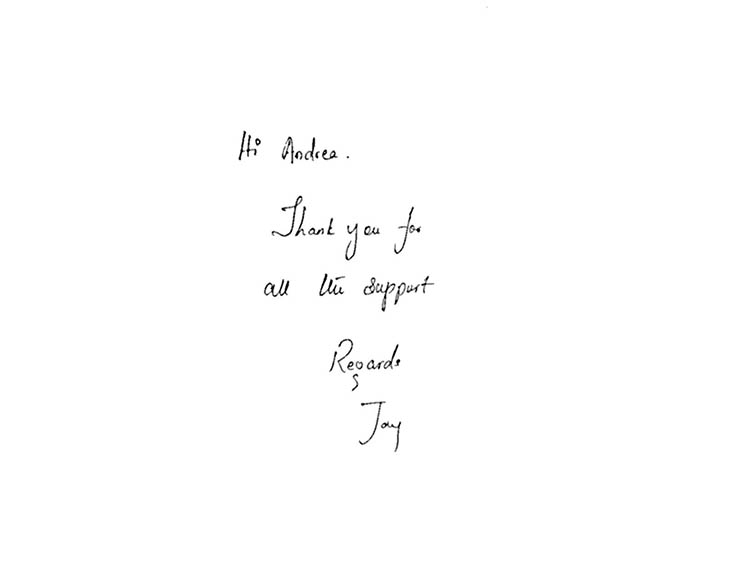 Hi Andrea.
Thank you for
all the support
Regards
Jay